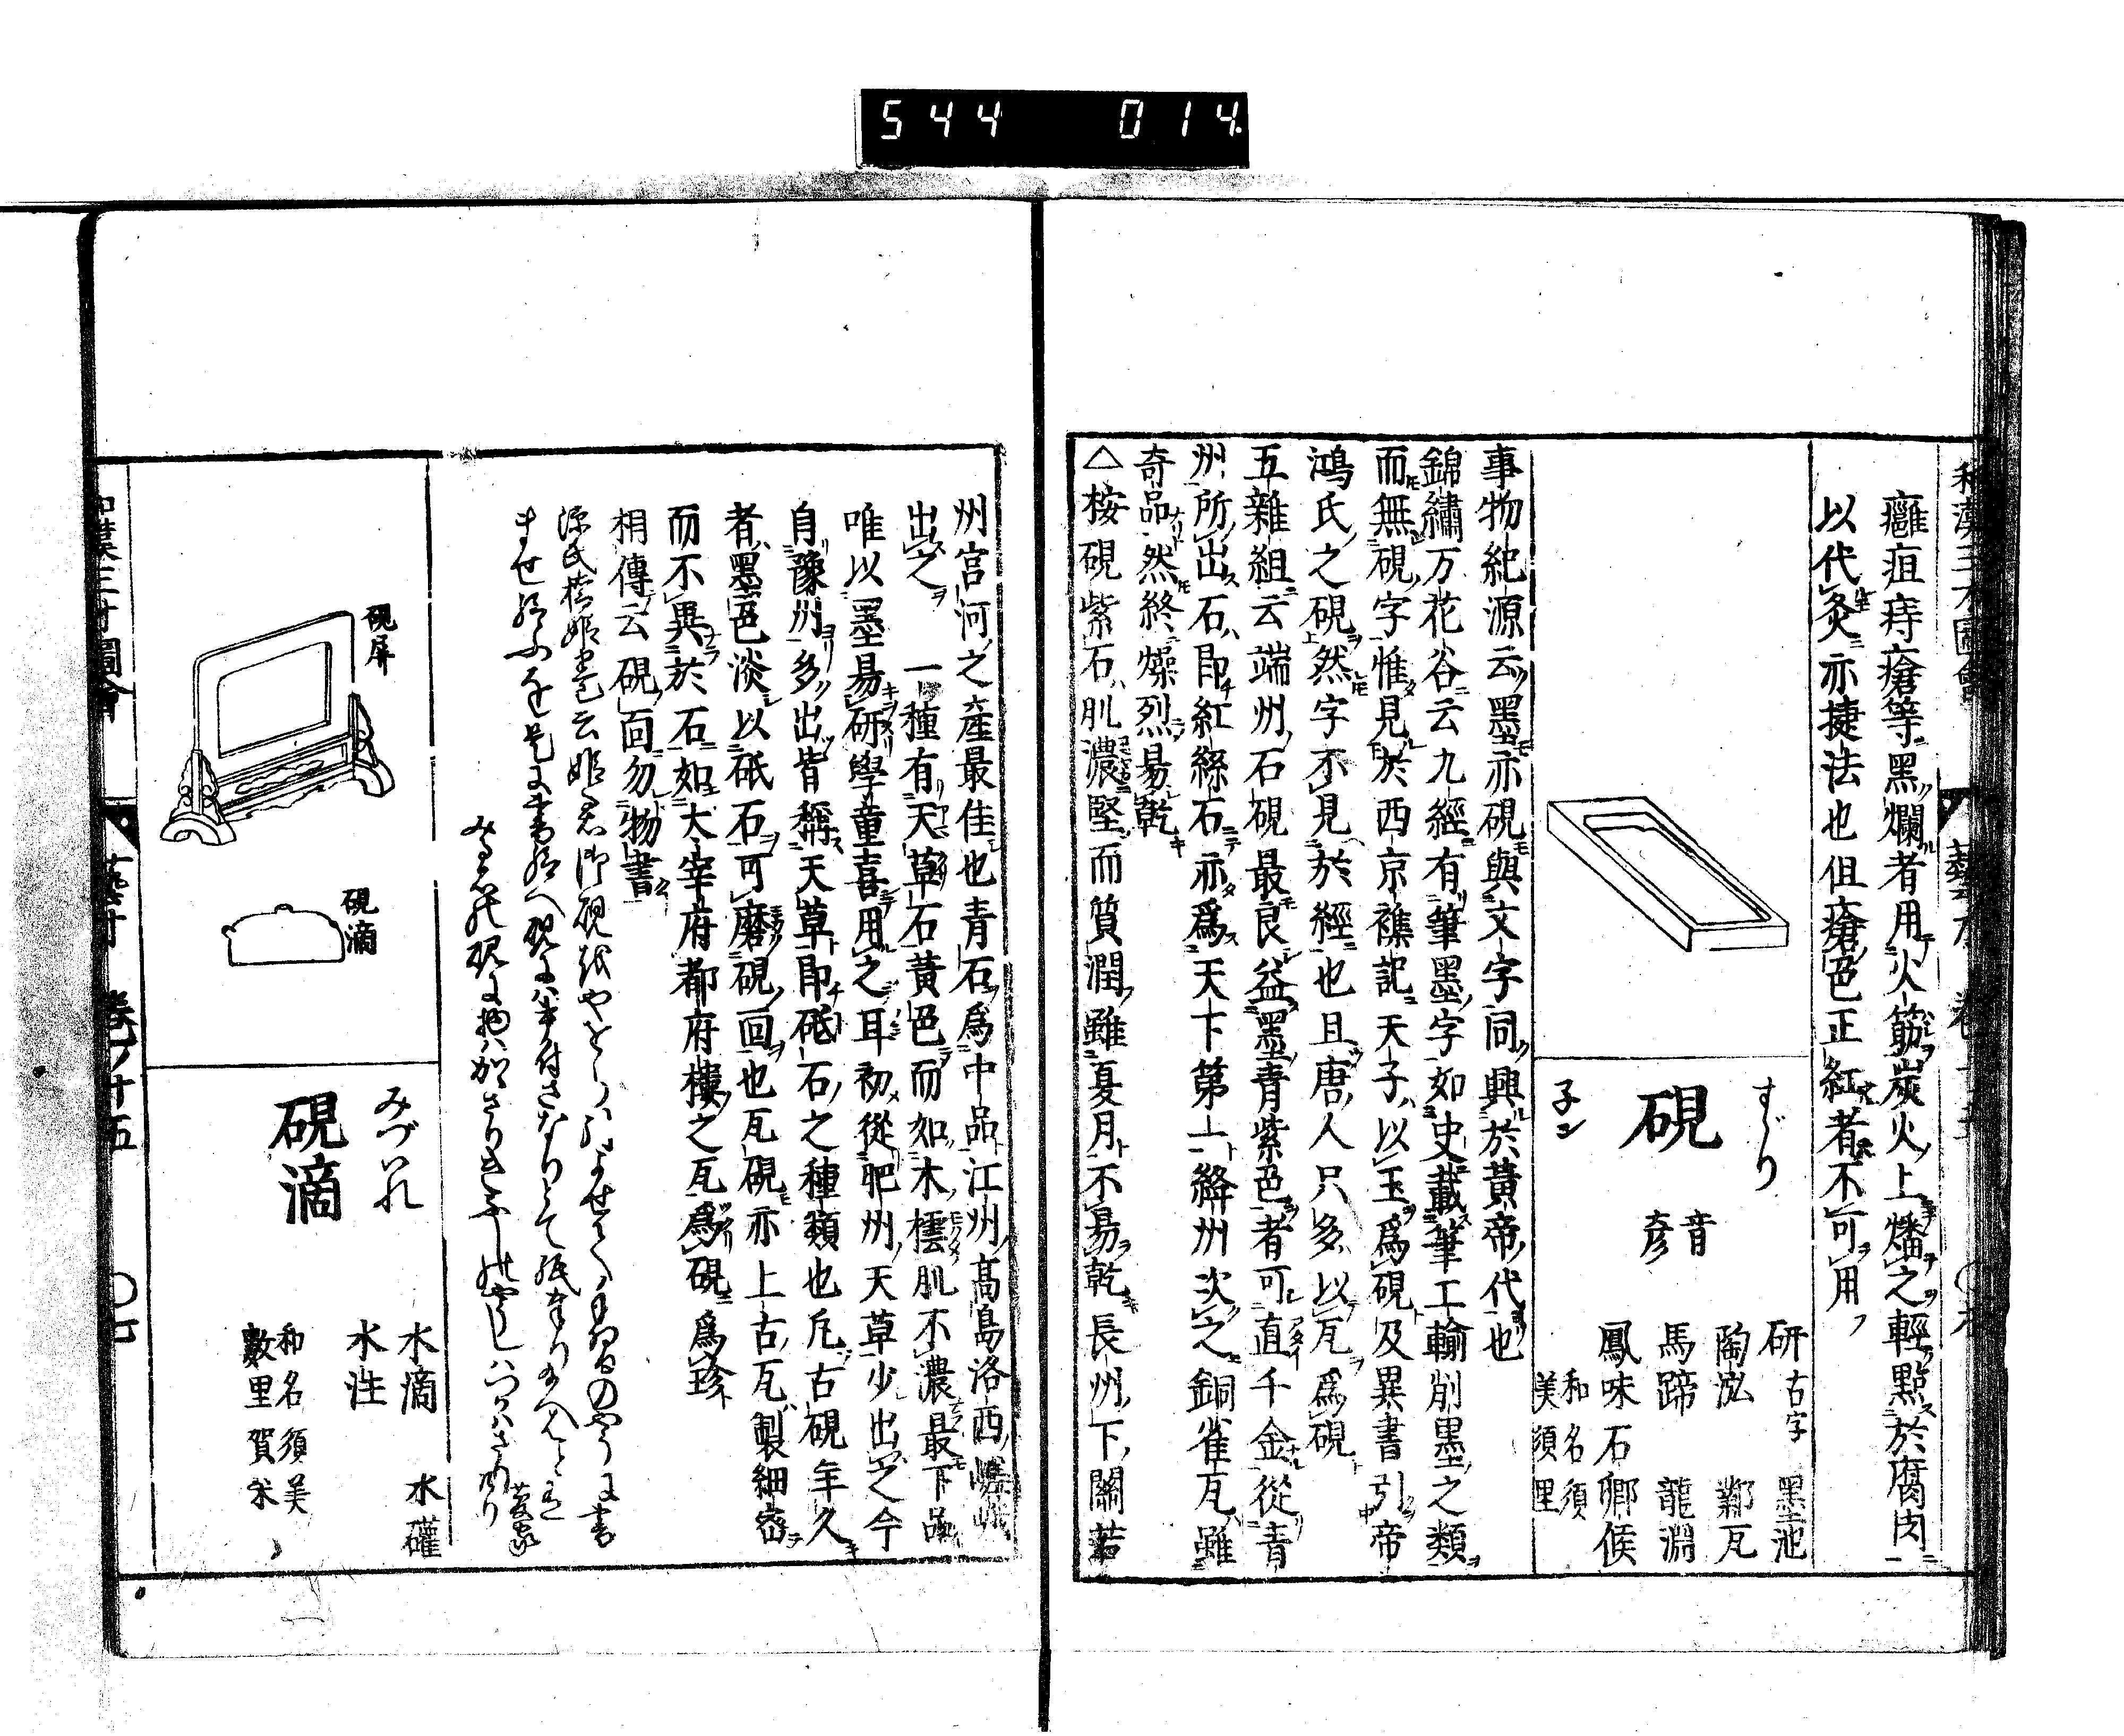 544 014.
和漢三才圖會 藝才 卷十五
癰疽痔瘡等黑爛者用火筯炭火上燔之輕㸃於腐肉
以代灸亦捷法也但瘡色正紅者不可用
すゞり
硯
音彦
研 古字 墨池
陶泓 鄴瓦
馬蹄 龍淵
鳳味 石鄉侯
和名須
美須里
事物紀源云墨亦硯與文字同興於黃帝代也
錦繡万花谷云九經有筆墨字如史載筆工輸削墨之類
而無硯字惟見於西京襍記天子以玉爲硯及異書引帝
鴻氏之硯然字不見於經也且唐人只多以瓦爲硯
五雜組云端州石硯最良益墨青紫色者可直千金從青
州所出石卽紅絲石亦爲天下第一絳州次之銅雀瓦雖
奇品然終燥烈易乾
△桉硯紫石肌濃堅而質潤雖夏月不易乾長州下關若
州宮河之產最佳也青石爲中品江州高島洛西嵯峨
出之 一種有天草石黃色而如木橒肌不濃最下品
唯以墨易研學童喜用之耳初從肥州天草少出之今
自豫州多出皆稱天草卽砥石之種類也凡古硯年久
者墨色淡以砥石可磨硯面也瓦硯亦上古瓦製細密
而不異於石如大宰府都府樓之瓦爲硯爲珍
相傳云硯面勿物書
硯屏
硯滴
みづいれ
硯滴
水滴 水礶
水注
和名須美
數里賀米
和漢三才圖會 藝才 卷ノ十五